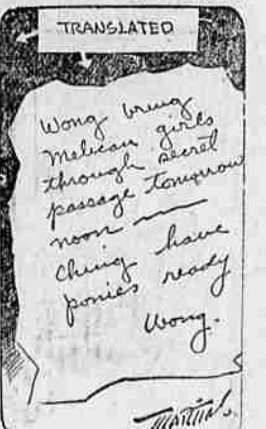 TRANSLATED
Wong bring
Melican girls
through secret
passage tomorrow
noon —
Ching have
ponies ready
Wong.